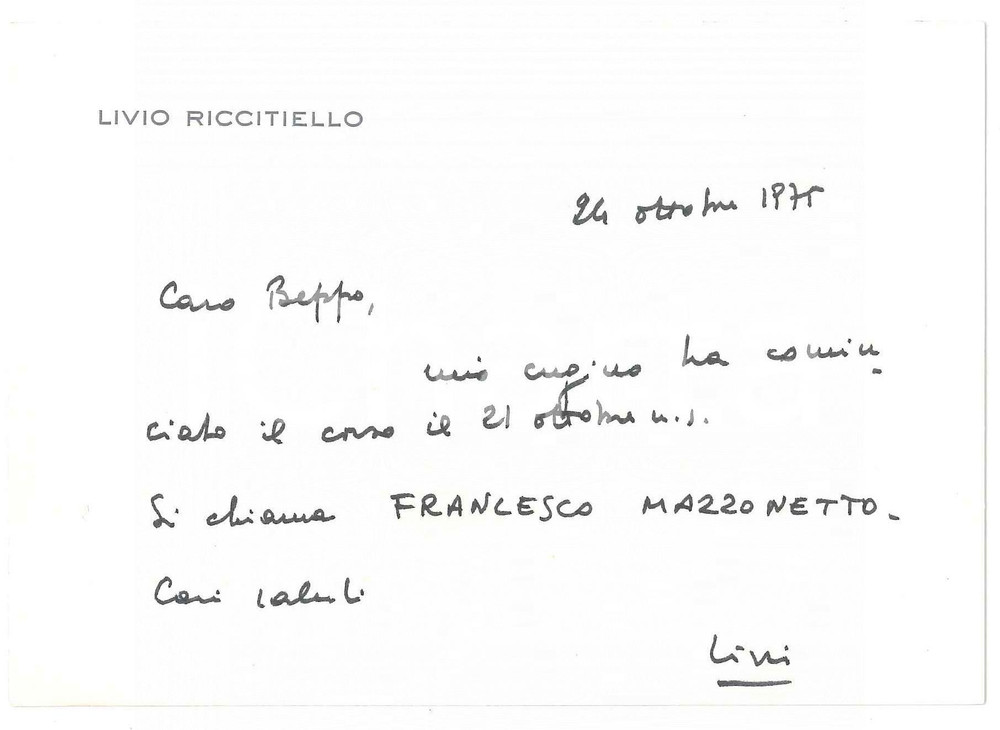 LIVIO RICCITIELLO
24 ottobre 1975
Caro Beppo,
mio cugino ha comin-
ciato il corso il 21 ottobre u.s.
Si chiama FRANCESCO MAZZONETTO.
Cari saluti
Livio